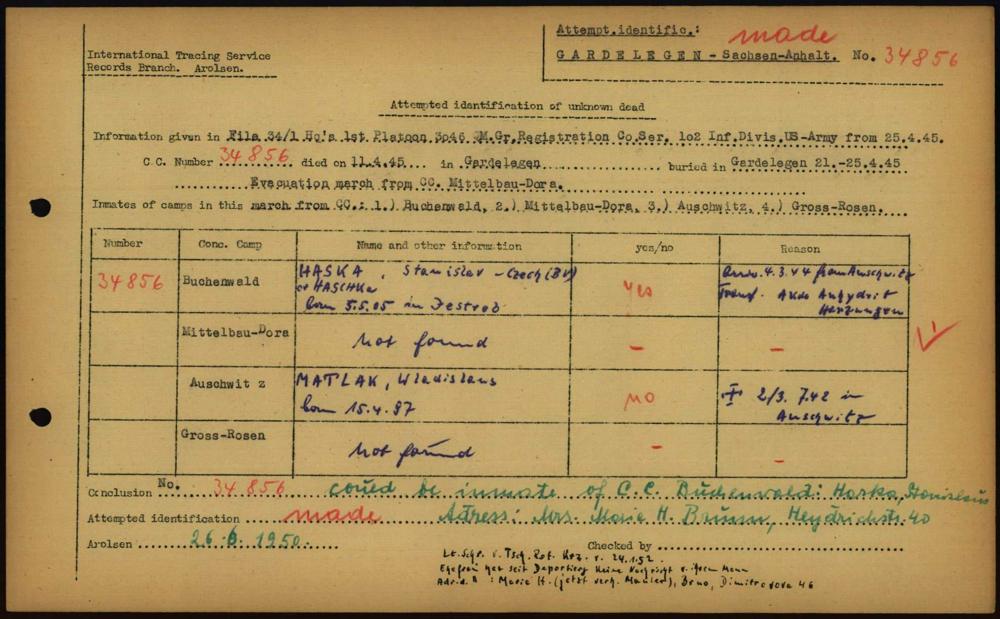 Attempt.identific.: made
GARDELEGEN - Sachsen-Anhalt. No. 34856
International Tracing Service
Records Branch. Arolsen.
Attempted identification of unknown dead
Information given in File 34/1 Hq's 1st Platoon 3046 QM.Gr.Registration Co.Ser. 102 Inf.Divis.US-Army from 25.4.45.
C.C. Number 34856 died on 11.4.45 in Gardelegen buried in Gardelegen 21.-25.4.45
Evacuation march from CC. Mittelbau-Dora.
Inmates of camps in this march from CC.: 1.) Buchenwald, 2.) Mittelbau-Dora, 3.) Auschwitz, 4.) Gross-Rosen.
Number Conc. Camp Name and other information yes/no Reason
34856 Buchenwald HASKA, Stanislav - Czech (BV) yes 4.3.44 from Auschwitz
or HASCHKA Transf. Akdo Anhydrit
born 5.5.05 in Jestrob Herzungen
Mittelbau-Dora not found - -
Auschwitz MATLAK, Wladislaus no † 2/3.7.42 in
born 15.4.97 Auschwitz
Gross-Rosen not found - -
Conclusion No. 34856 could be inmate of C.C. Buchenwald: Haska, Stanislaus
Attempted identification made Adress: Mrs. Marie H. Brünn, Heydrichstr. 40
Arolsen 26.6.1950. Checked by
Lt. Schr. v. Tsch. Rot. Krz. v. 24.1.52.
Ehefrau hat seit Deportierg keine Nachricht v. ihrem Mann
Adr. d. : Marie H. (jetzt verh. ), Brno, Dimitrovova 46